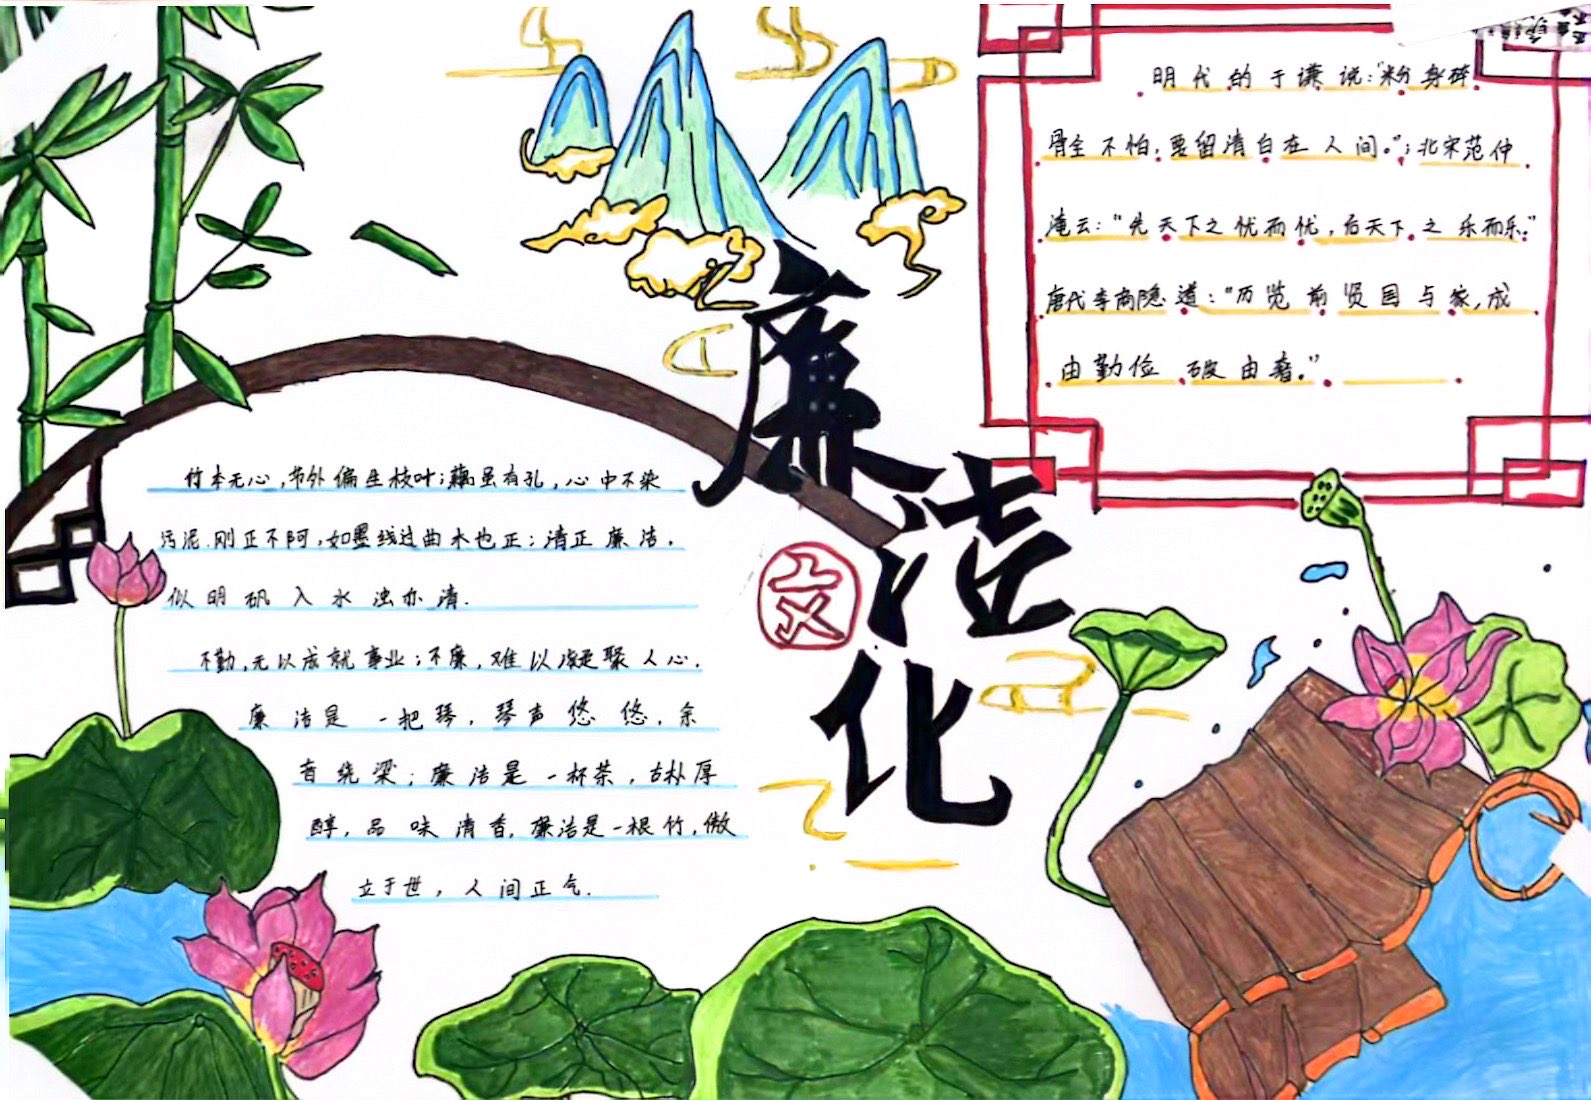 廉洁
文
化
明代的于谦说:“粉身碎
骨全不怕,要留清白在人间。”;北宋范仲
淹云:“先天下之忧而忧,后天下之乐而乐。”
唐代李商隐道:“历览前贤国与家,成
由勤俭破由奢。”
竹本无心,节外偏生枝叶;藕虽有孔,心中不染
污泥.刚正不阿,如墨线过曲木也正;清正廉洁,
似明矾入水浊亦清.
不勤,无以成就事业;不廉,难以凝聚人心.
廉洁是一把琴,琴声悠悠,余
音绕梁;廉洁是一杯茶,古朴厚
醇,品味清香,廉洁是一根竹,傲
立于世,人间正气.